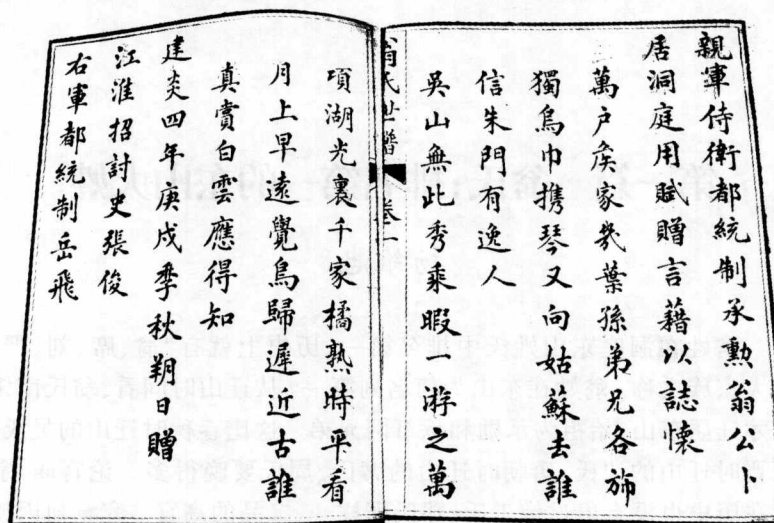 親軍侍衛都統制承動翁公卜
居洞庭用賦贈言藉以誌懷
萬戶矦家㡬葉孫弟兄各斾
獨烏巾携琴又向姑蘇去誰
信朱門有逸人
吳山無此秀乘暇一游之萬
翁氏世譜 卷一
項湖光裏千家橘熟時平看
月上早遠覺鳥歸遲近古誰
真賞白雲應得知
建炎四年庚戌季秋朔日贈
江淮招討史張俊
右軍都統制岳飛